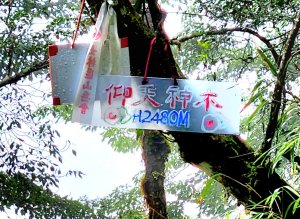 仰天神木
H2480M